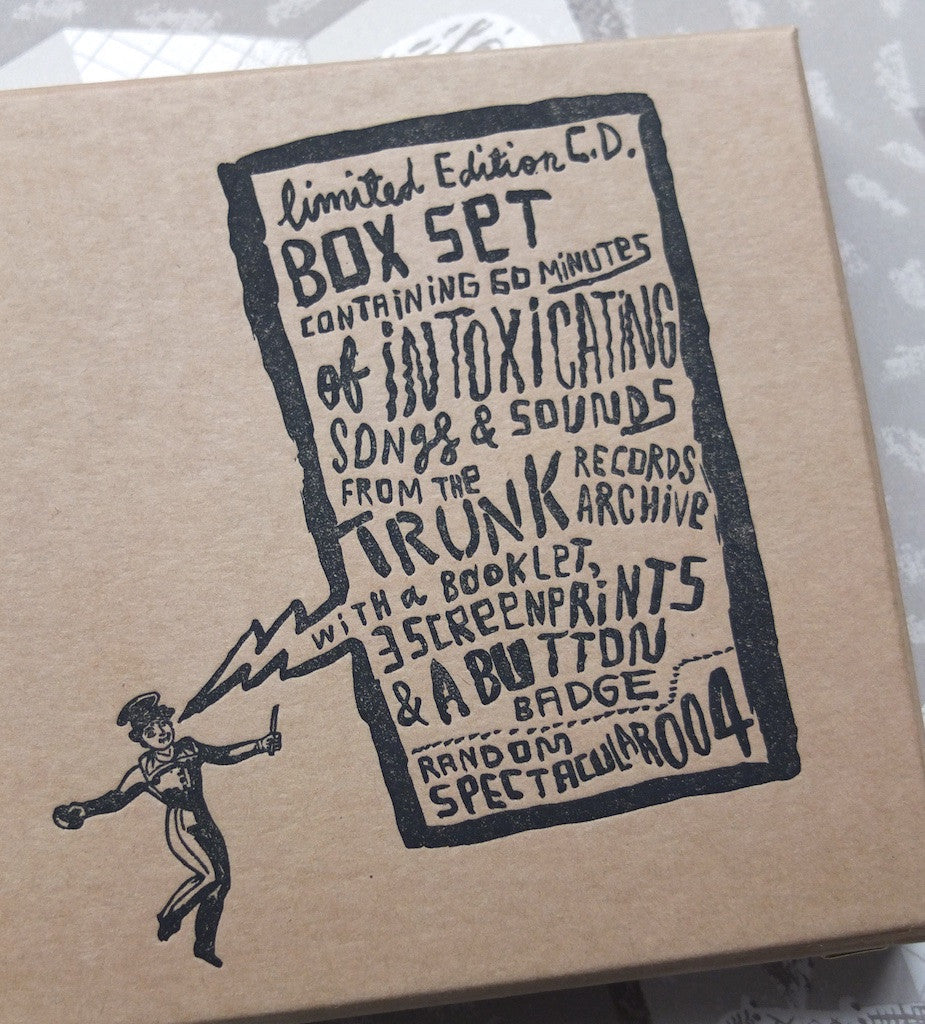 limited Edition C.D.
BOX SET
CONTAINING 60 MINUTES
of INTOXICATING
SONGS & SOUNDS
FROM THE TRUNK RECORDS ARCHIVE
WITH a BOOKLET,
3 SCREENPRINTS
& A BUTTON
BADGE
RANDOM
SPECTACULAR 004